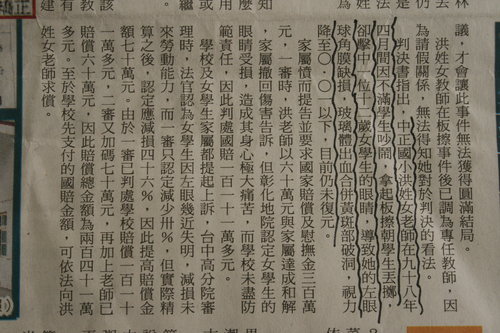 議，才會讓此事件無法獲得圓滿結局。
洪姓女教師在板擦事件後已調為專任教師，因
為請假關係，無法得知她對於判決的看法。
判決書指出，中正國小洪姓女老師在九十八年
四月間因不滿學生吵鬧，拿起板擦朝學生丟擲，
卻擊中一位十一歲女學生的眼睛，導致她的左眼
球角膜缺損，玻璃體出血合併黃斑部破洞，視力
降至○．○一以下，目前仍未復元。
家屬憤而提告並要求國家賠償及慰撫金三百萬
元，一審時，洪老師以六十萬元與家屬達成和解
，家屬撤回傷害告訴，但彰化地院認定女學生的
眼睛受損，造成其身心極大痛苦，而學校未盡防
範責任，因此判處國賠一百十一萬多元。
學校及女學生家屬都提起上訴，台中高分院審
理時，法官認為女學生因左眼幾近失明，減損未
來勞動能力，而一審只認定減少卅％，但實際精
算之後，認定應減損四十六％，因此提高賠償金
額七十萬元。由於一審已判處學校賠償一百一十
一萬多元，二審又加碼七十萬元，再加上老師已
賠償六十萬元，因此賠償總金額為兩百四十一萬
多元。至於學校先支付的國賠金額，可依法向洪
姓女老師求償。